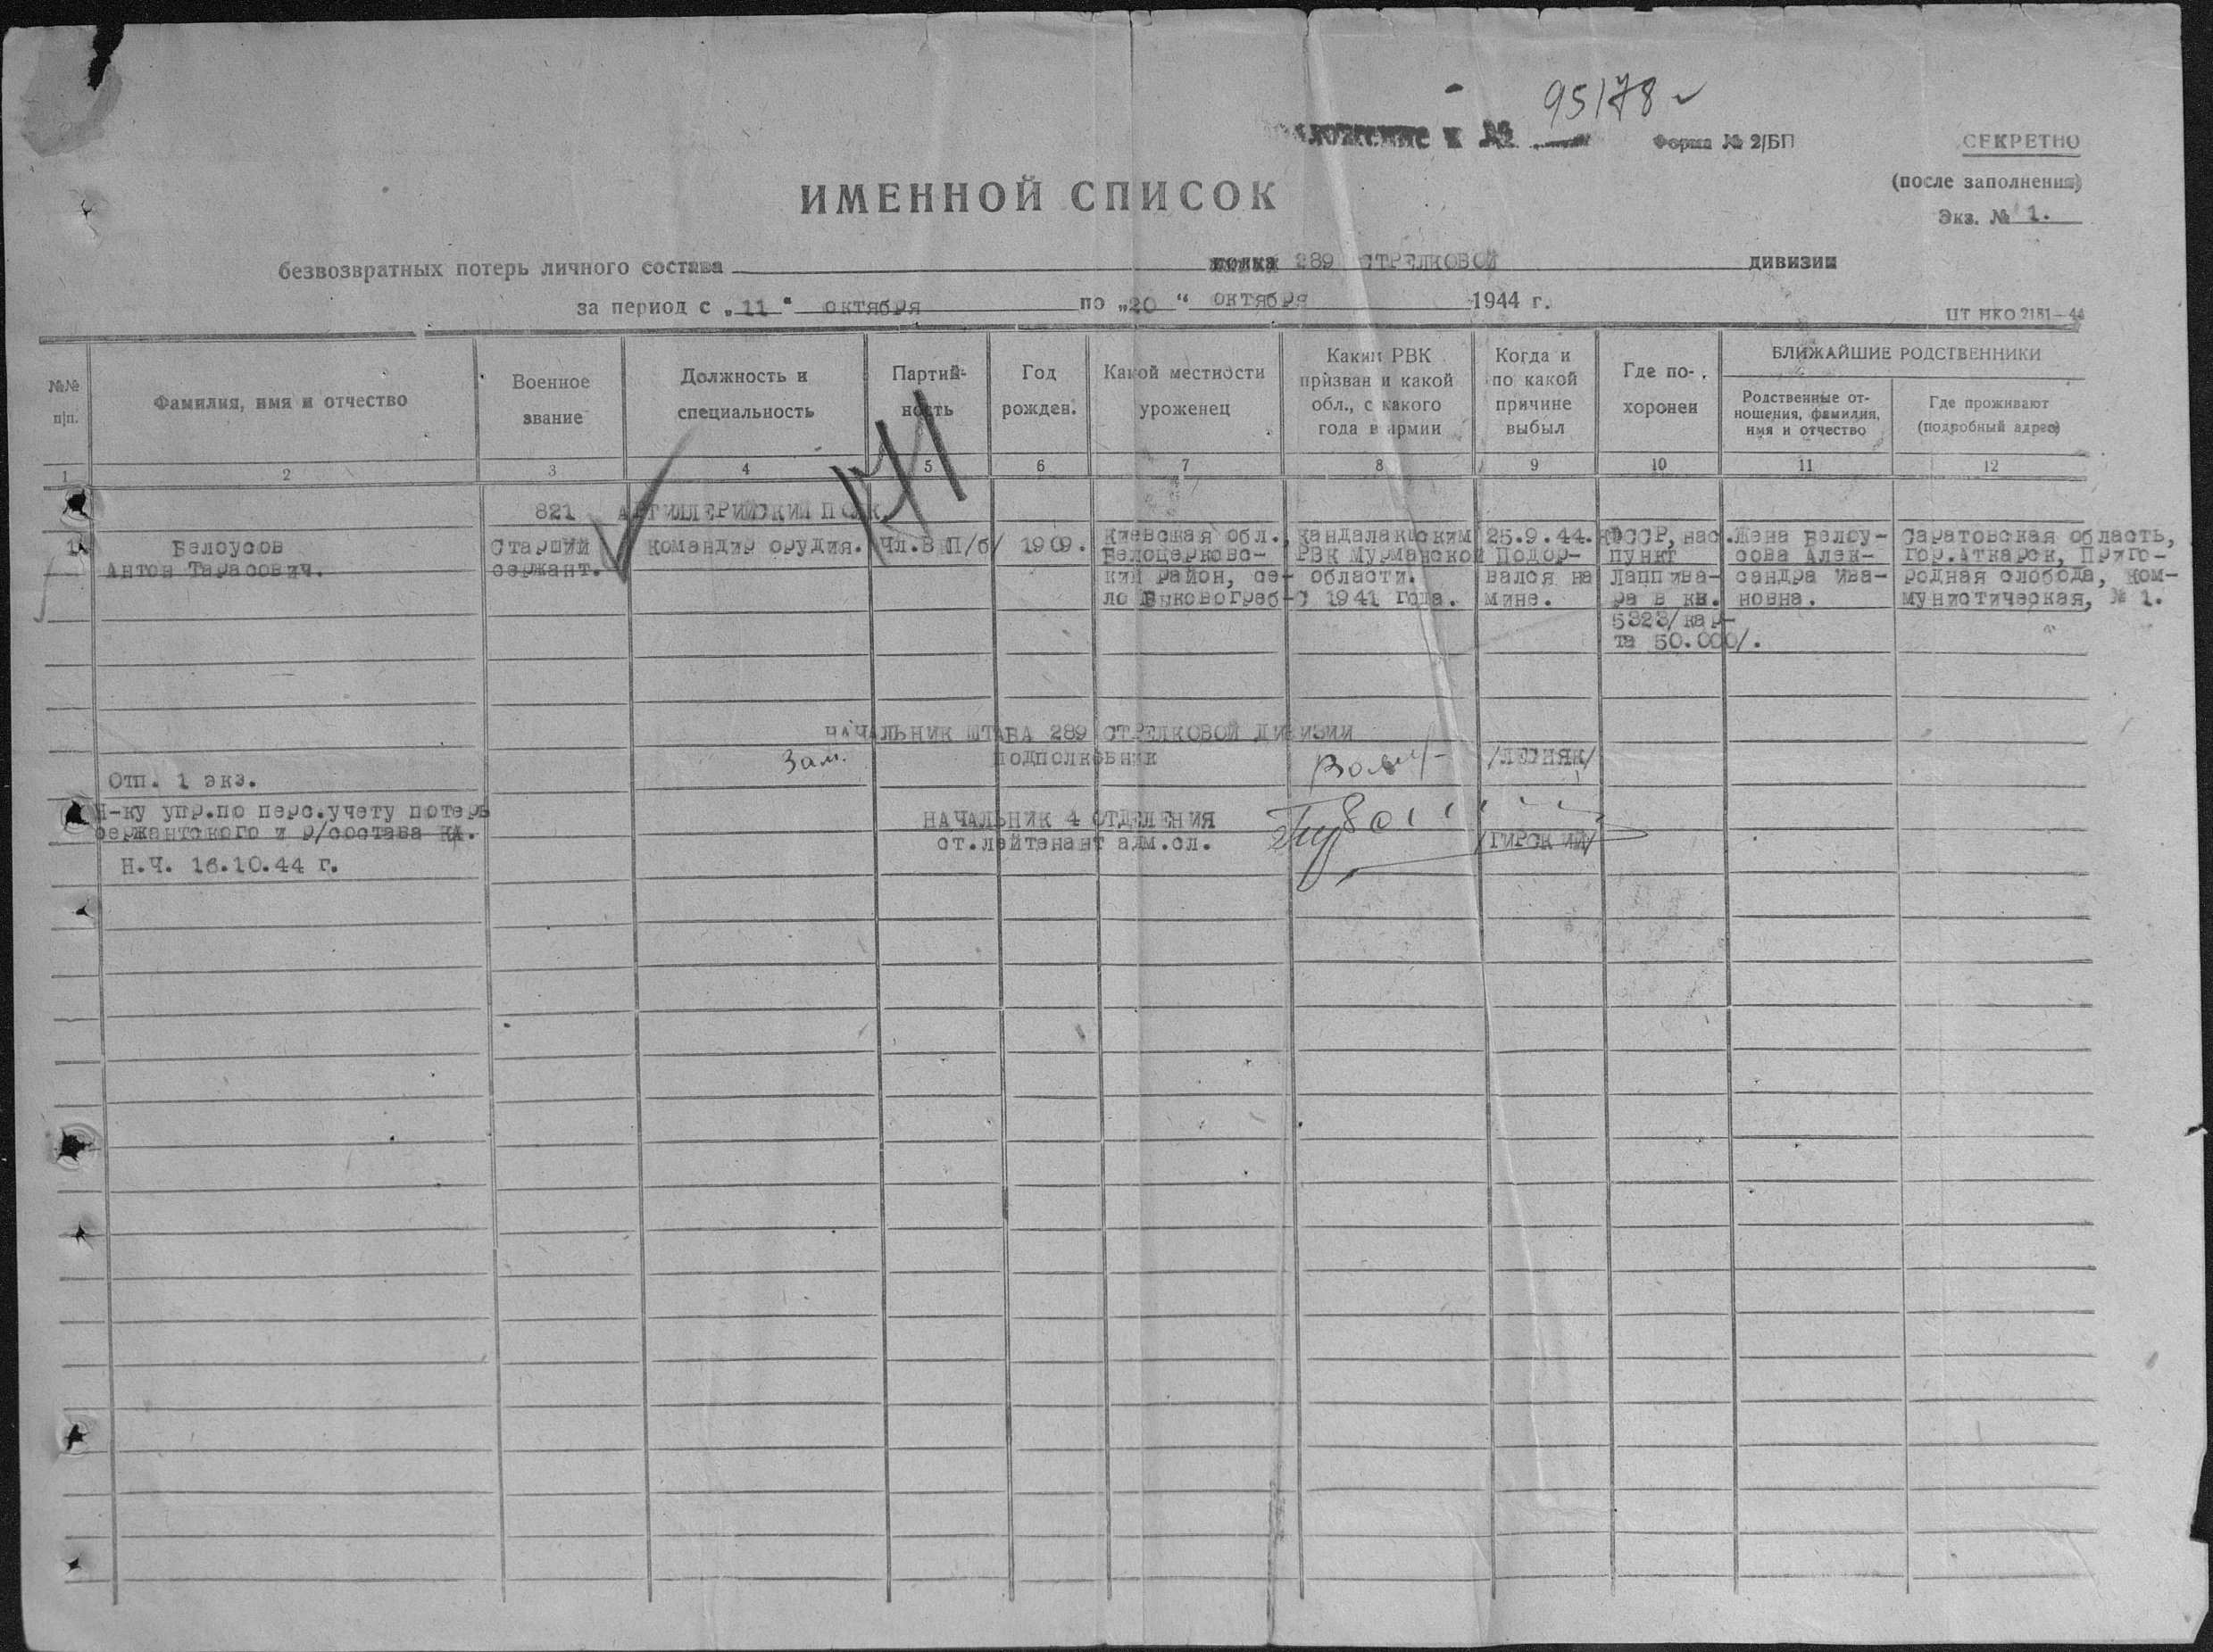 95178
ложение к №
Форма № 2/БП
СЕКРЕТНО
(после заполнения)
Экз. № 1.
ИМЕННОЙ СПИСОК
безвозвратных потерь личного состава полка 289 СТРЕЛКОВОЙ дивизии
за период с „11" октября по „20" октября 1944 г.
ЦТ НКО 2181—44
№№ п|п.
Фамилия, имя и отчество
Военное звание
Должность и специальность
Партий-
ность
Год рожден.
Какой местности уроженец
Каким РВК
призван и какой
обл., с какого
года в армии
Когда и
по какой
причине
выбыл
Где по-
хоронен
БЛИЖАЙШИЕ РОДСТВЕННИКИ
Родственные от-
ношения, фамилия,
имя и отчество
Где проживают
(подробный адрес)
1 2 3 4 5 6 7 8 9 10 11 12
171
821 АРТИЛЛЕРИЙСКИЙ ПОЛК
1.
Белоусов
Антон Тарасович.
Старший
сержант.
Командир орудия.
Чл.ВКП/б/
1909.
Киевская обл.,
Белоцерковс-
кий район, се-
ло Быковогреб-
Кандалакшским
РВК Мурманской
области.
С 1941 года.
25.9.44.
Подор-
вался на
мине.
КФССР, нас.
пункт
Лаппива-
ра в кв.
5323/кар-
та 50.000/.
Жена Белоу-
сова Алек-
сандра Ива-
новна.
Саратовская область,
гор.Аткарск, Приго-
родная слобода, Ком-
мунистическая, № 1.
НАЧАЛЬНИК ШТАБА 289 СТРЕЛКОВОЙ ДИВИЗИИ
Зам. ПОДПОЛКОВНИК /ЛЕГНЯК/
Отп. 1 экз.
Н-ку упр.по перс.учету потерь
сержантского и р/состава КА.
Н.Ч. 16.10.44 г.
НАЧАЛЬНИК 4 ОТДЕЛЕНИЯ
ст.лейтенант адм.сл. /ГИРСКИЙ/